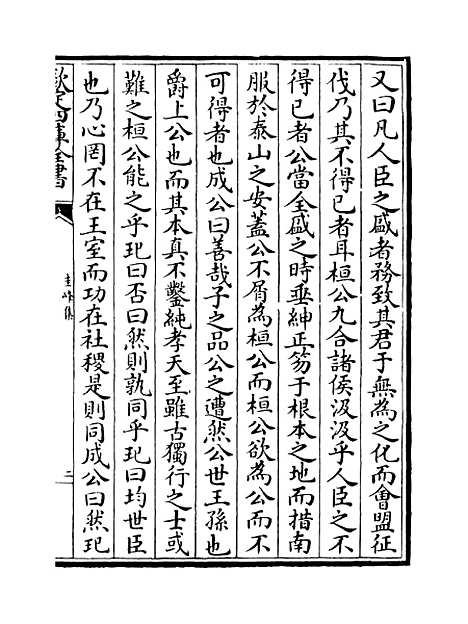 又曰凡人臣之盛者務致其君于無為之化而會盟征
伐乃其不得已者耳桓公九合諸侯汲汲乎人臣之不
得已者公當全盛之時垂紳正笏于根本之地而措南
服於泰山之安蓋公不屑為桓公而桓公欲為公而不
可得者也成公曰善哉子之品公之遭然公世王孫也
爵上公也而其本真不鑿純孝天至雖古獨行之士或
難之桓公能之乎玘曰否曰然則孰同乎玘曰均世臣
也乃心罔不在王室而功在社稷是則同成公曰然玘
欽定四庫全書
圭峰集
二